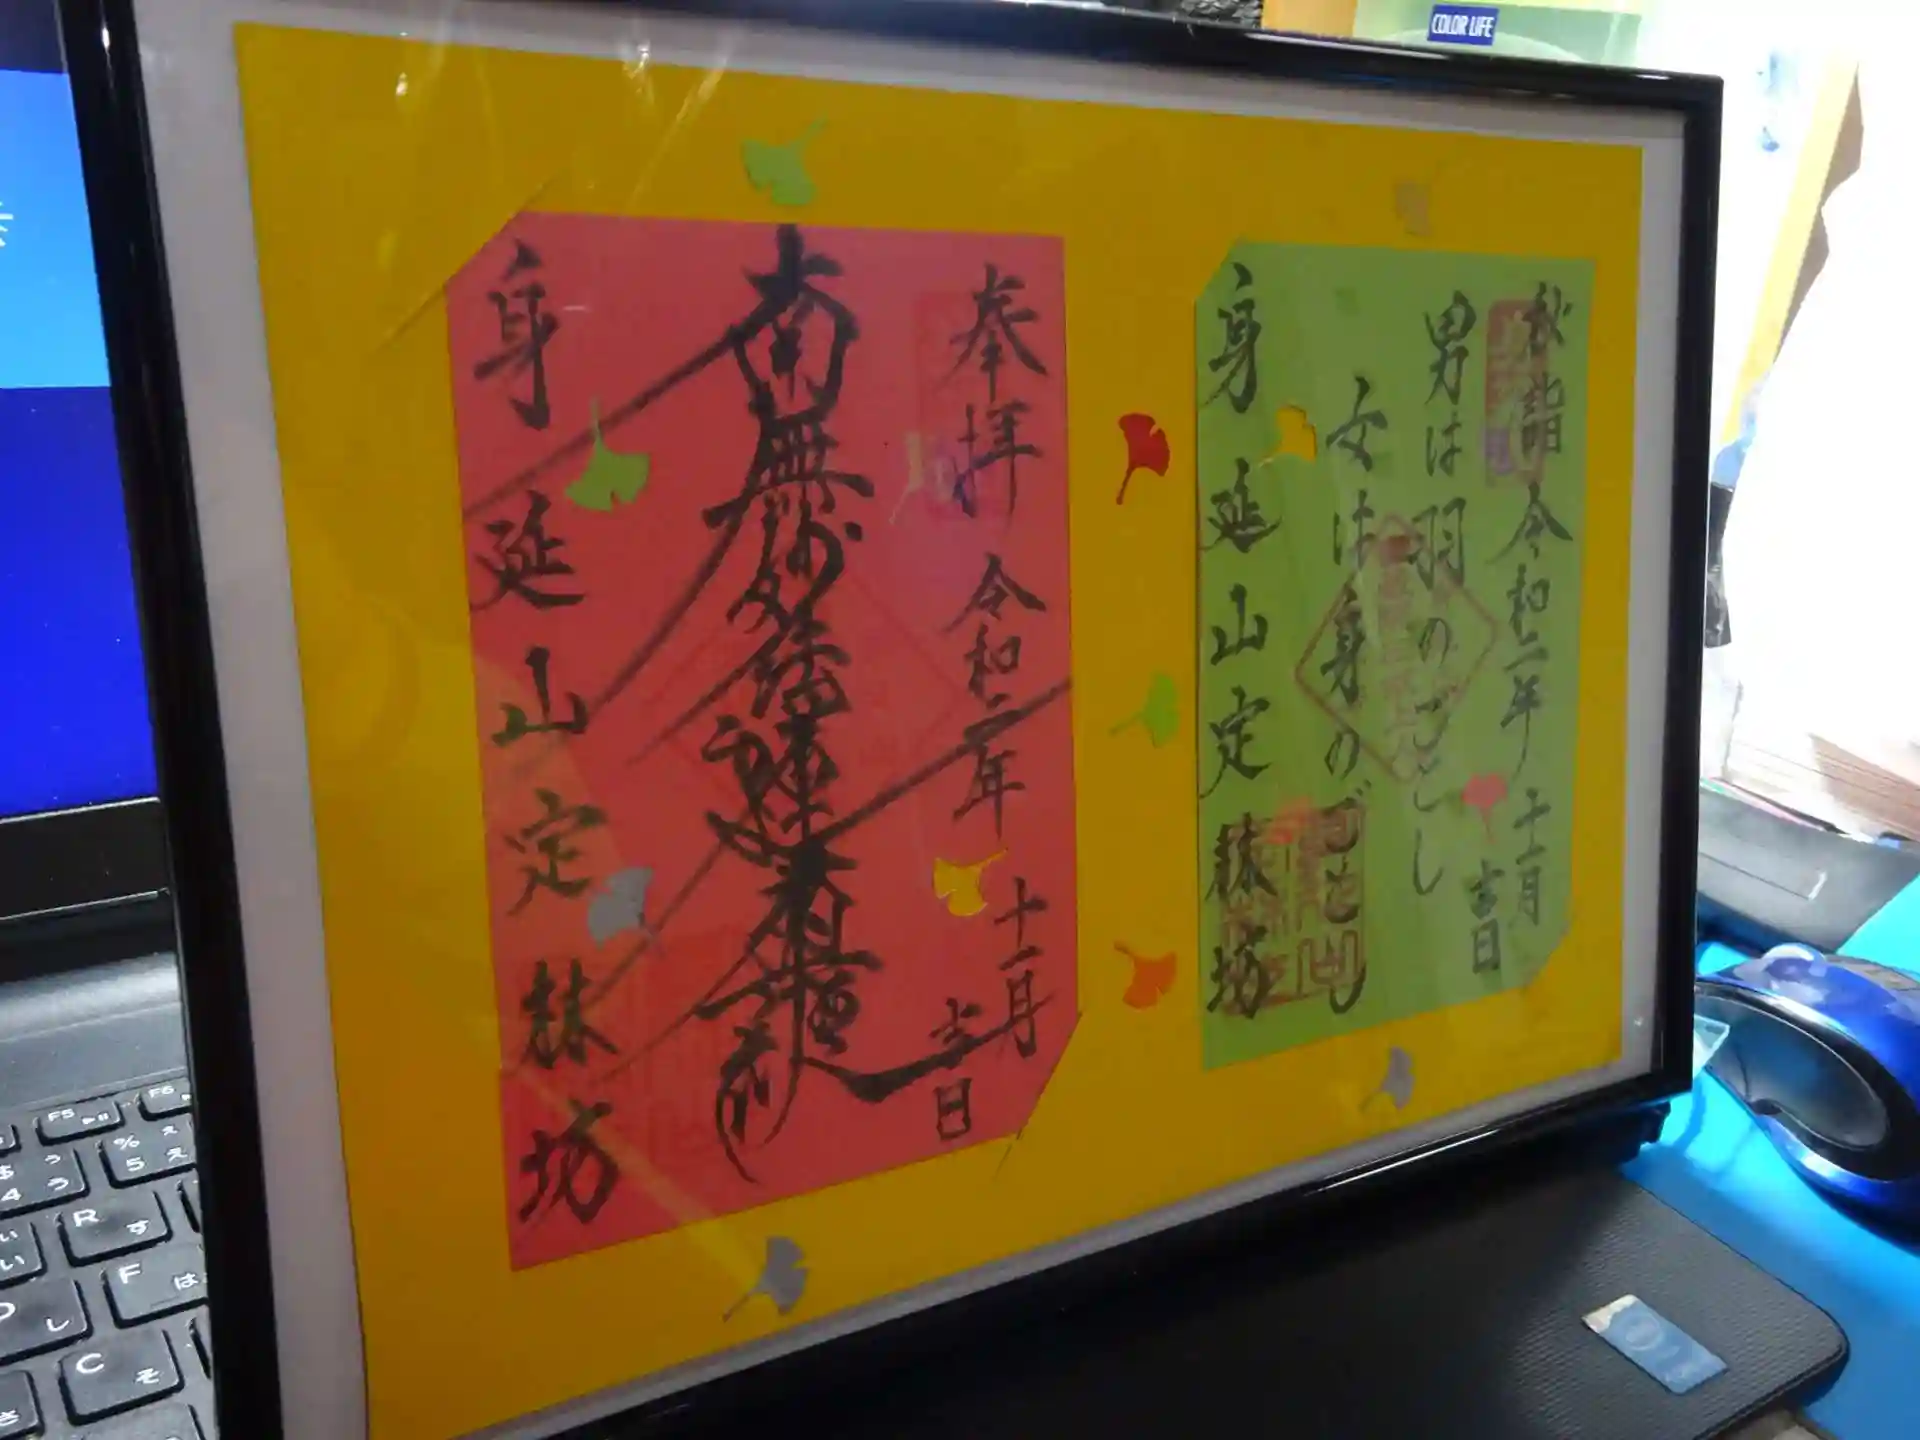 COLOR LIFE
秋詣 令和二年 十一月
吉日
男は羽のごとし
女は身のごとし
身延山定林坊
奉拝 令和二年 十一月
吉日
南無妙法蓮華経
身延山定林坊
F5
F6
R す
F は
C そ